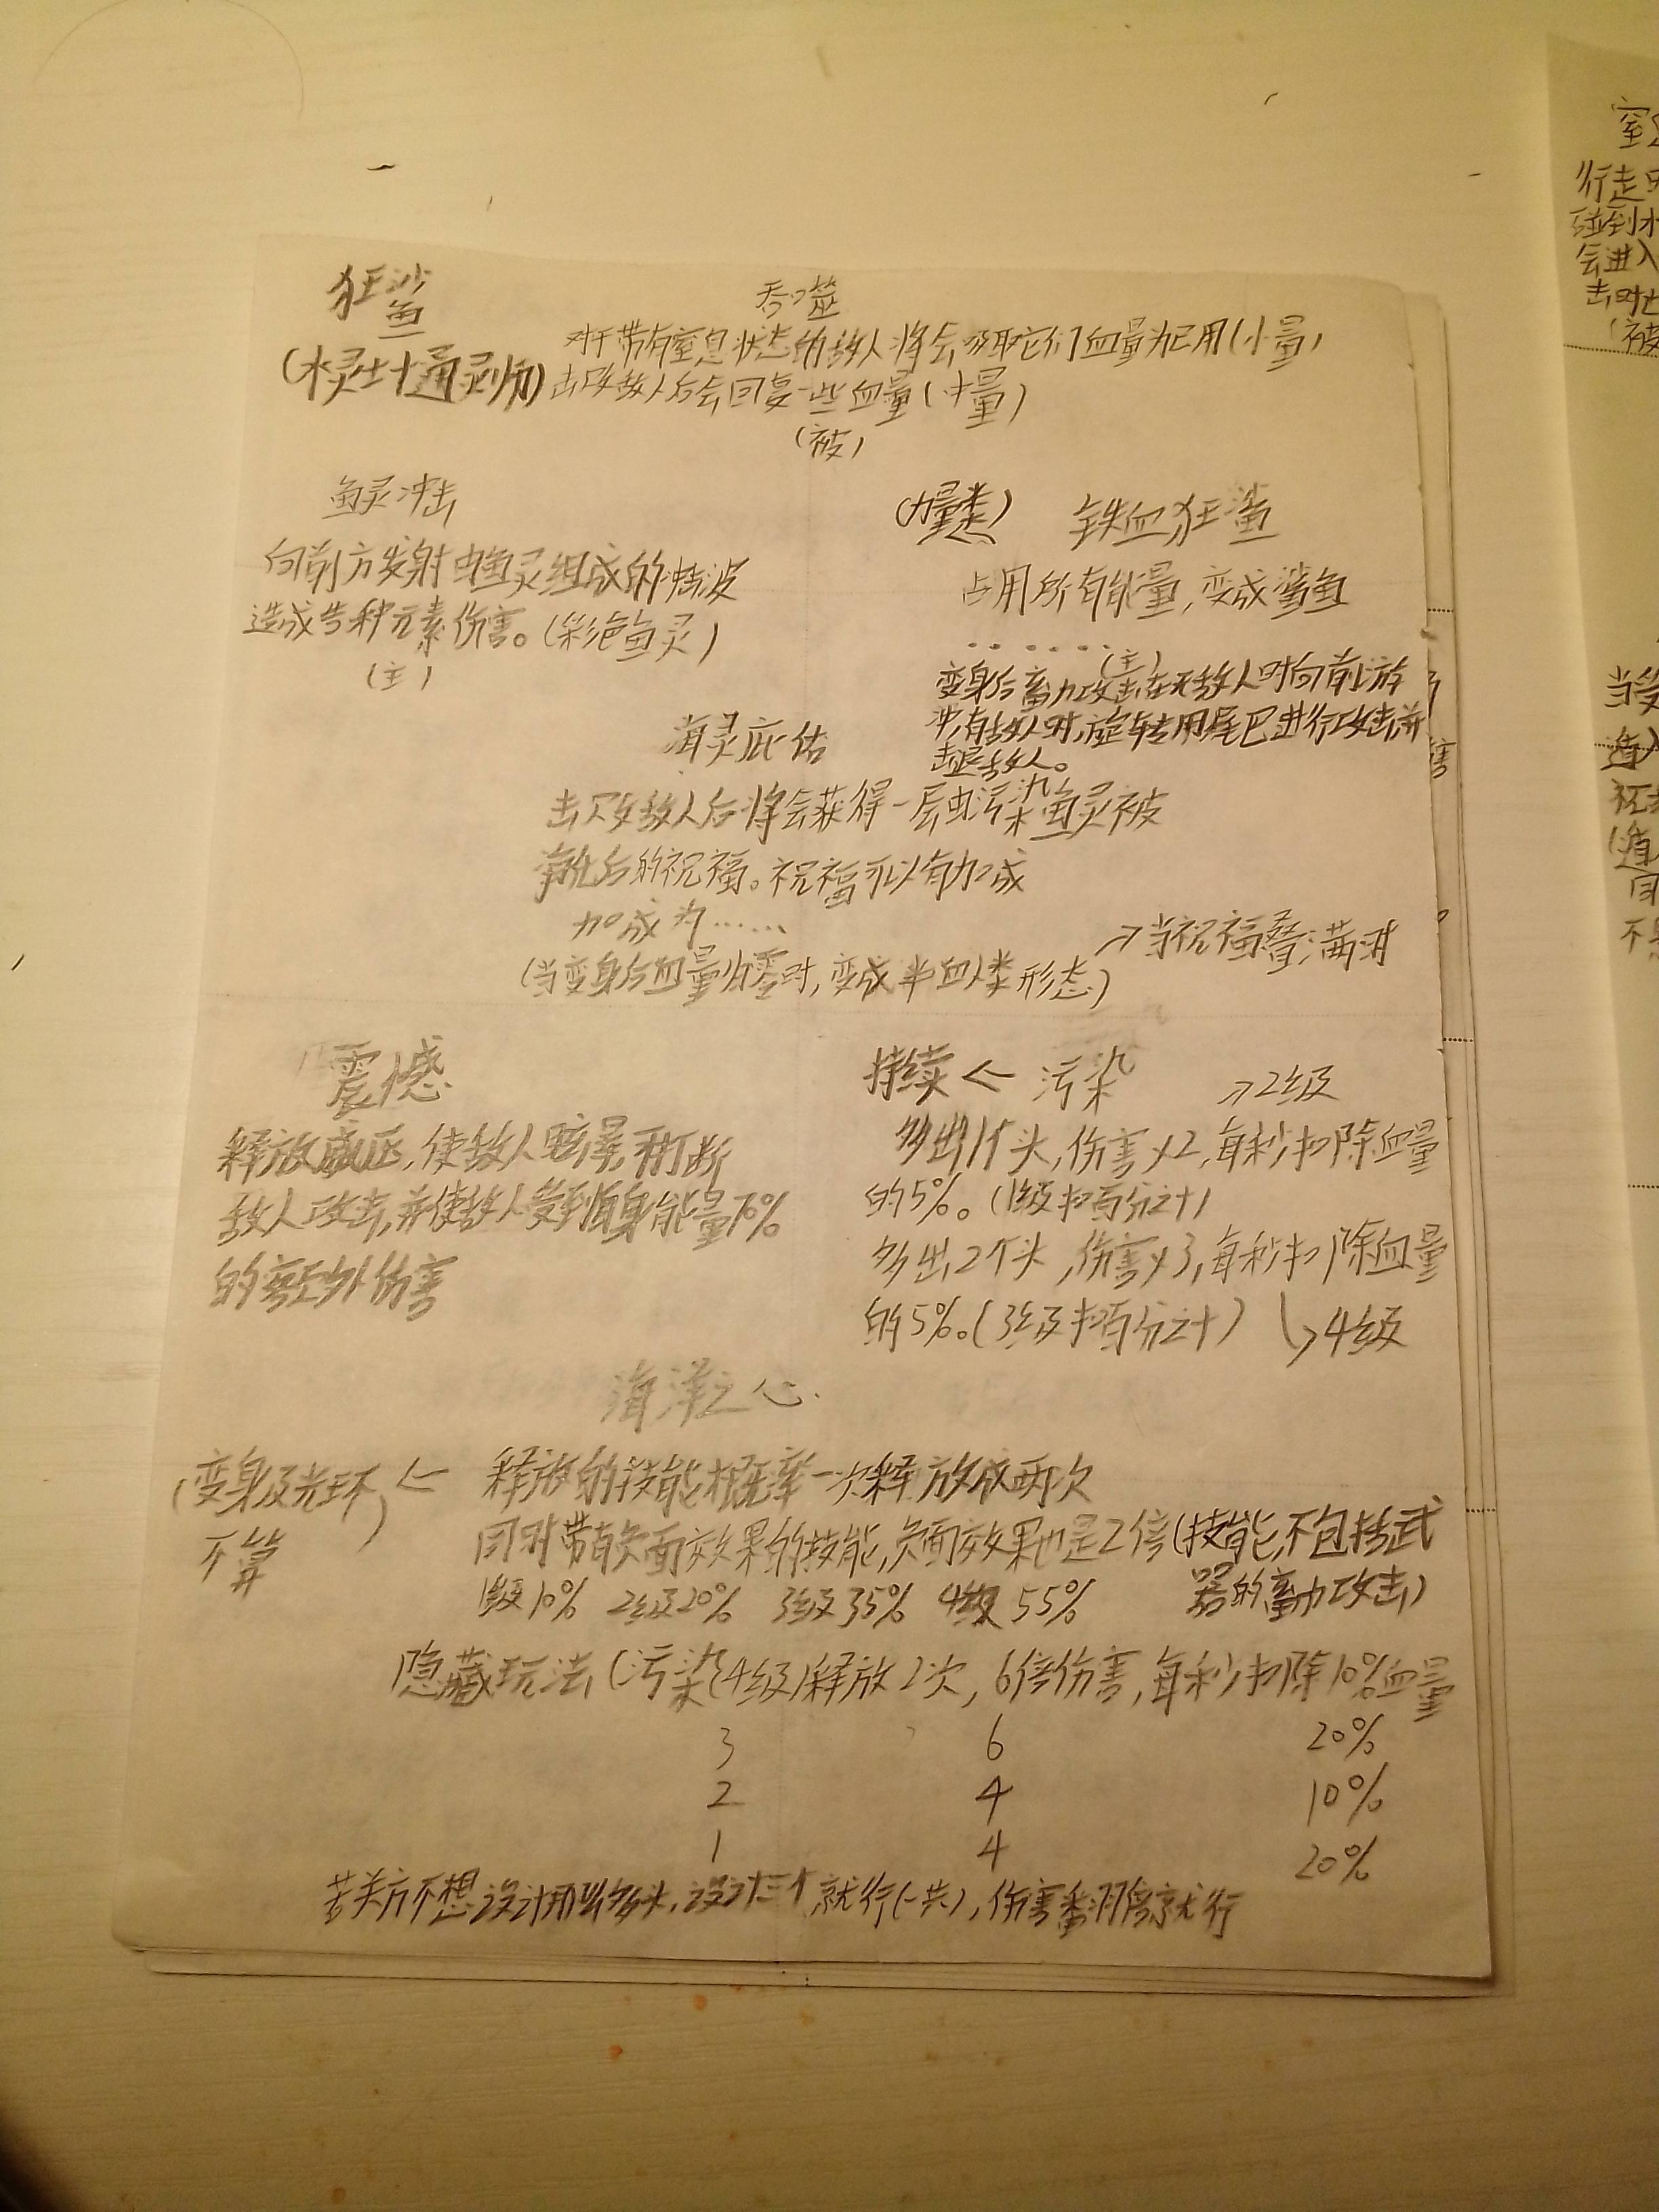 狂鲨
(水灵士+通灵师)
吞噬
对于带有窒息状态的敌人将会吸取它们血量为己用(小量)
击败敌人后会回复一些血量(中量)
(被)
鱼灵冲击
向前方发射由鱼灵组成的
造成各种元素伤害。(彩色鱼灵)
(主)
铁血狂鲨
占用所有能量,变成鲨鱼
.......
(主)
变身后蓄力攻击在无敌人时向前上游
冲,有敌人时,旋转用尾巴进行攻击,并
击退敌人。
海灵庇佑
击败敌人后将会获得一层由污染鱼灵被
净化后的祝福。祝福可以有加成
加成为……
→当祝福叠满时
(当变身后血量归零时,变成半血人类形态)
震憾
释放威压,使敌人眩晕,和打断
敌人攻击,并使敌人受到自身能量70%
的额外伤害
持续 ← 污染
→2级
多出1个头,伤害×2,每秒扣除血量
的5%。(1级扣百分之十)
多出2个头,伤害×3,每秒扣除血量
的5%。(3级扣百分之十) →4级
海洋之心
(变身及光环不算) ← 释放的技能概率一次释放成两次
同时带有负面效果的技能,负面效果也是2倍(技能,不包括武
器的蓄力攻击)
1级10% 2级20% 3级35% 4级55%
隐藏玩法(污染(4级)释放2次,6倍伤害,每秒扣除10%血量
3 6 20%
2 4 10%
1 4 20%
若官方不想设计那么多头,设计三个就行(一共),伤害翻倍就行
窒
行走
碰到水
会进入
击时
(被
当受